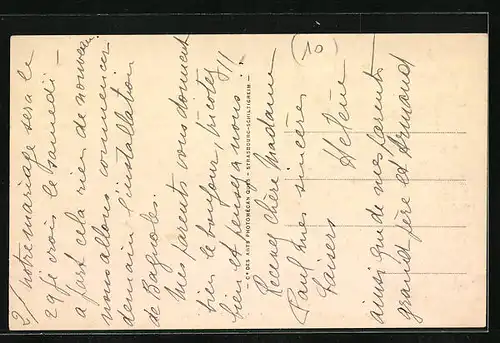 2/ notre mariage sera le
29 je crois le samedi —
a part cela rien de nouveau
nous allons commencer
demain l'installation
de Bagnoles.
Mes parents vous donnent
bien le bonjour,
bien et pensez a nous!
— Cie DES ARTS PHOTOMÉCANIQUES - STRASBOURG-SCHILTIGHEIM —
Recevez chère Madame
Paul mes sincères
baisers Helène
ainsi que de mes parents
grand père et Armand